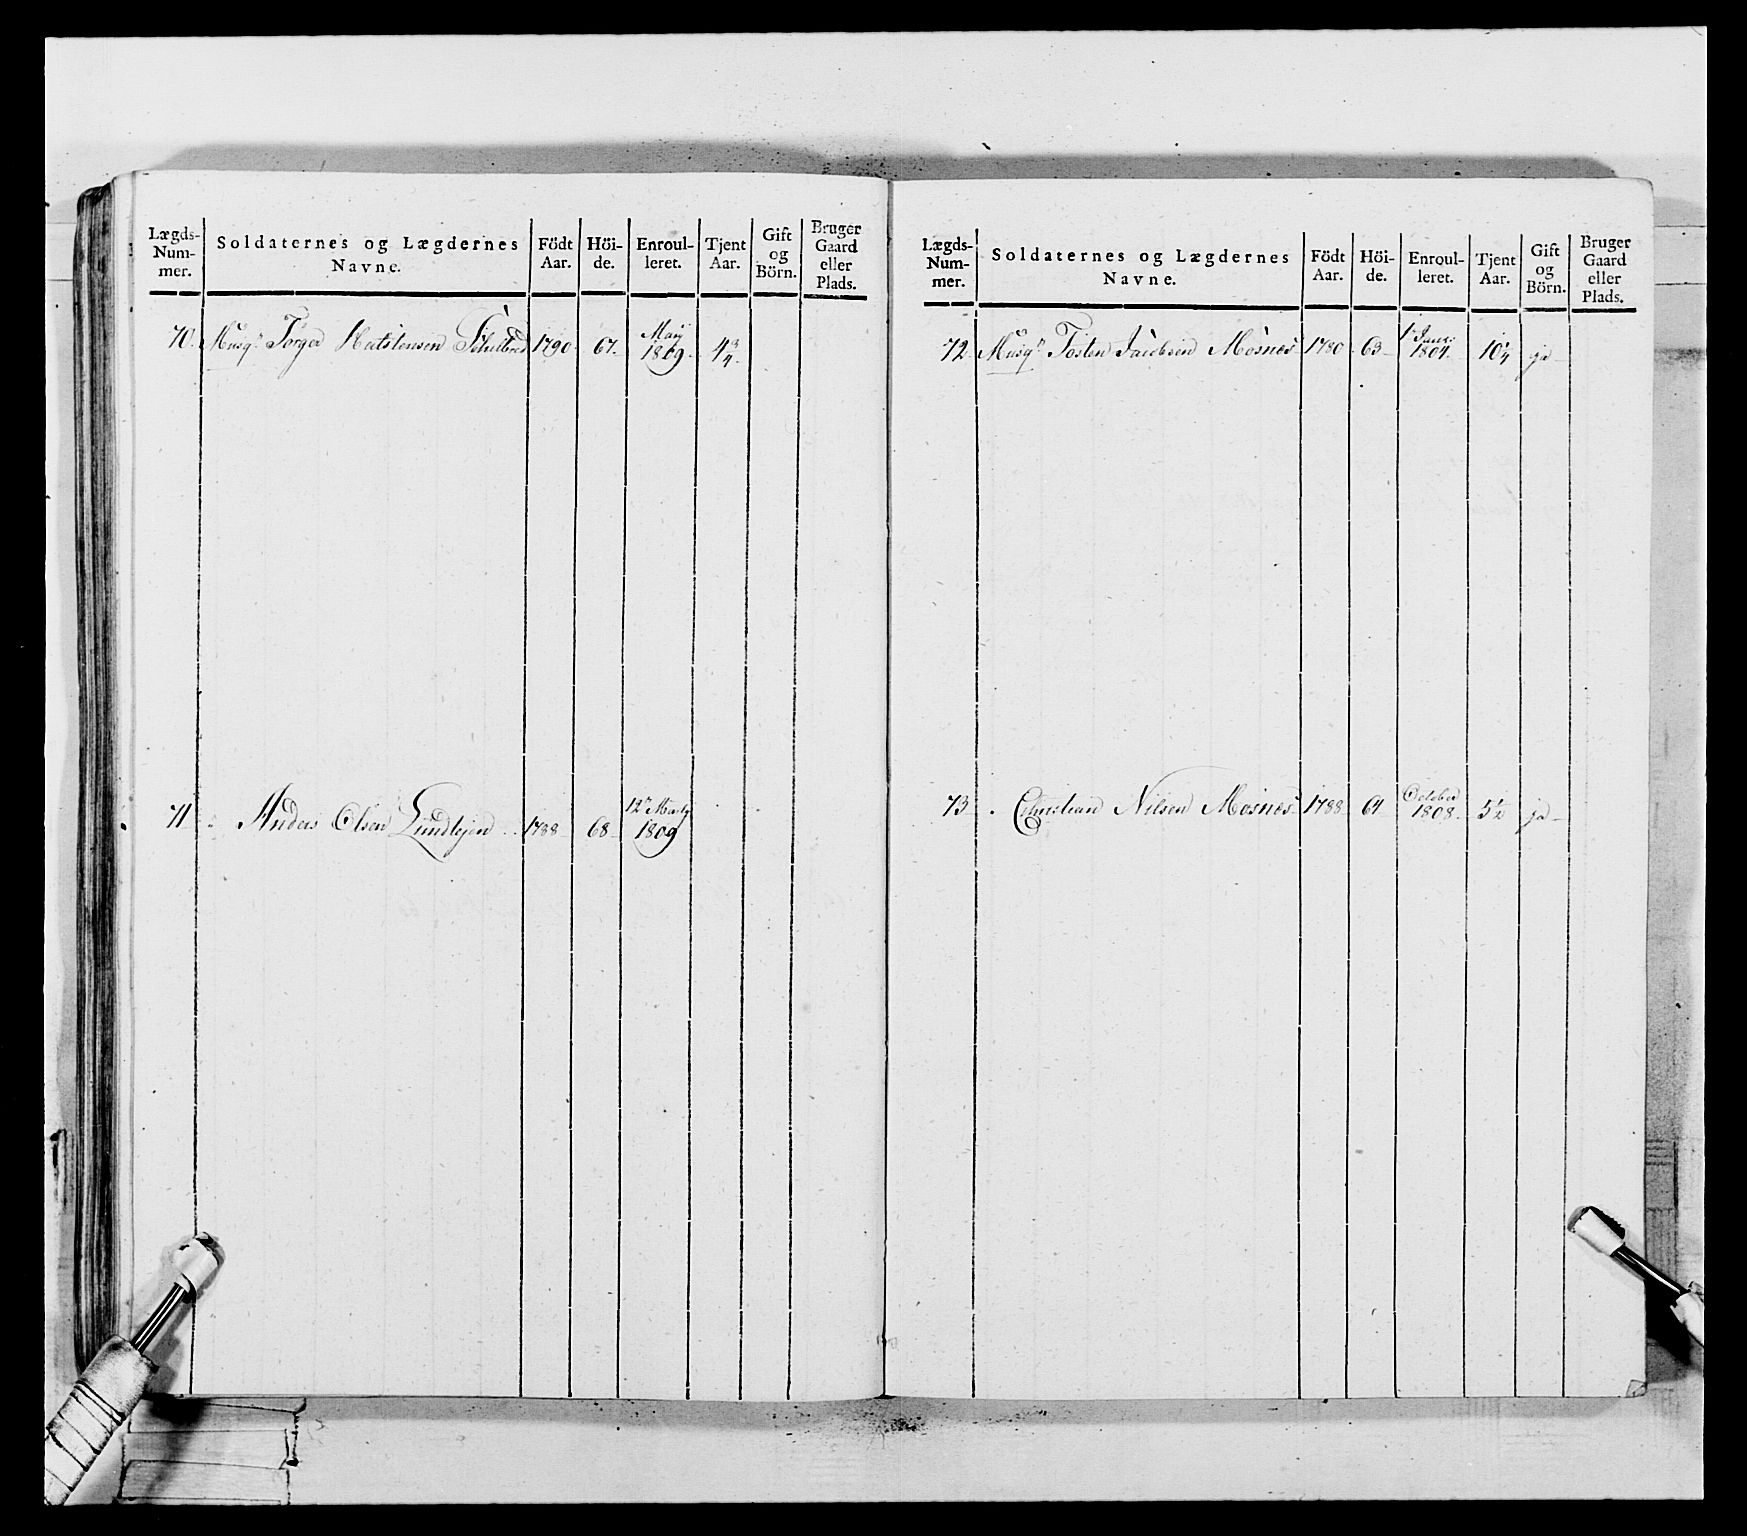 Lægds-Num-mer. Soldaternes og Lægdernes Navne. Födt Aar. Höi-de. Enroul-leret. Tjent Aar. Gift og Börn. Bruger Gaard eller Plads.
70. Musqr Törger 1790 67. Maÿ 1809 4 3/4
71 " Anders Olsen Lundtejen 1788 68 12te Marty 1809
Lægds-Num-mer. Soldaternes og Lægdernes Navne. Födt Aar. Höi-de. Enroul-leret. Tjent Aar. Gift og Börn. Bruger Gaard eller Plads.
72 Musqr Tosten Jacobsen Mosnes 1780 63 1te Janr: 1804. 10 1/4 ja
73 Christian Nilsen Mosnes 1788 64 October 1808. 5 1/2 ja